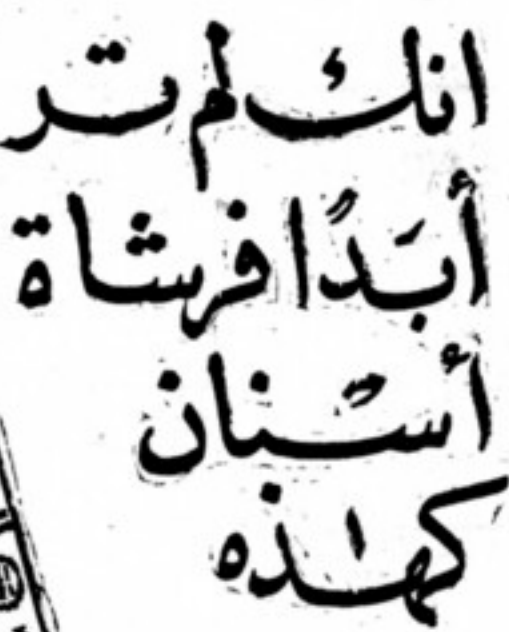 انك لم تر
أبَدًا فرشاة
أسنان
كهذه